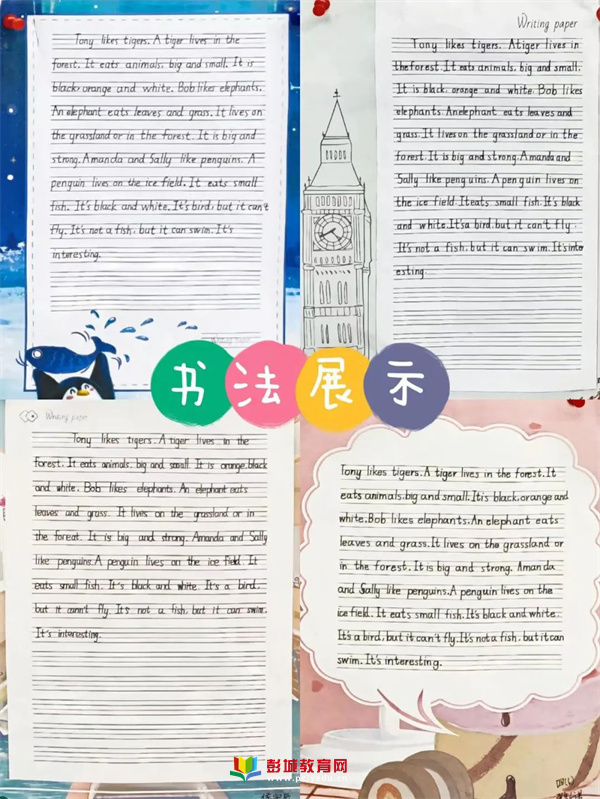 Tony likes tigers. A tiger lives in the
forest. It eats animals, big and small. It is
black, orange and white. Bob likes elephants.
An elephant eats leaves and grass. It lives on
the grassland or in the forest. It is big and
strong. Amanda and Sally like penguins. A
penguin lives on the ice field. It eats small
fish. It's black and white. It's bird, but it can't
fly. It's not a fish, but it can swim. It's
interesting.
Writing paper
Writing paper
Tony likes tigers. Atiger lives in
the forest. It eats animals, big and small.
It is black, orange and white. Bob likes
elephants. Anelephant eats leaves and
grass. It lives on the grassland or in the
forest. It is big and strong. Amanda and
Sally like penguins. A penguin lives on
the ice field. It eats small fish. It's black
and white. It'sa bird, but it can't fly.
It's not a fish, but it can swim. It's inter
esting.
书法展示
Writing paper
Tony likes tigers. A tiger lives in the
forest. It eats animals, big and small. It is orange, black
and white. Bob likes elephants. An elephant eats
leaves and grass. It lives on the grassland or in
the foreat. It is big and strong. Amanda and Sally
like penguins. A penguin lives on the ice field. It
eats small fish. It's black and white. It's a bird,
but it cann't fly. It's not a fish, but it can swim.
It's interesting.
Tony likes tigers. A tiger lives in the forest. It
eats animals, big and small. Itis black, orange and
white. Bob likes elephants. An elephant eats
leaves and grass. It lives on the grassland or
in the forest. It is big and strong. Amanda
and Sally like penguins. A penguin lives on the
ice field. It eats small fish. It's black and white.
It's a bird, but it can't fly. It's not a fish, but it can
swim. It's interesting.
彭城教育网